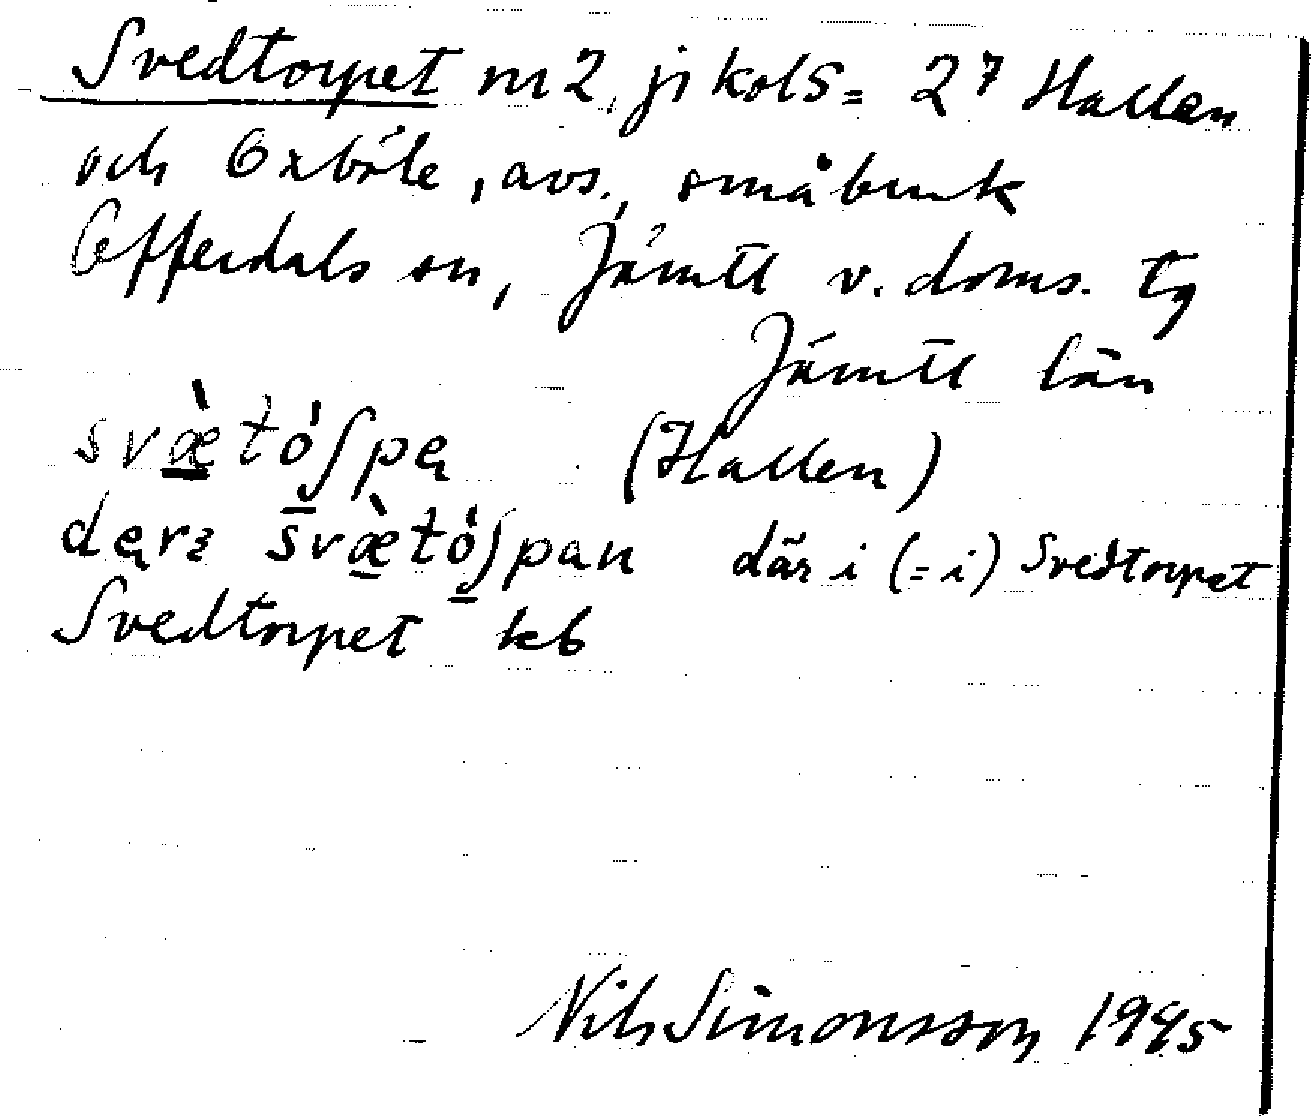 Svedtorpet nr 2, ji kols = 2⁷ Hallen
och Oxböle, avs., småbruk
Offerdals sn, Jämtl v. doms. tg
Jämtl län
svæ̀tóʃpę (Hallen)
dęrɜ svæ̀tóʃpan där i (= i) Svedtorpet
Svedtorpet kb
Nils Simonsson 1945